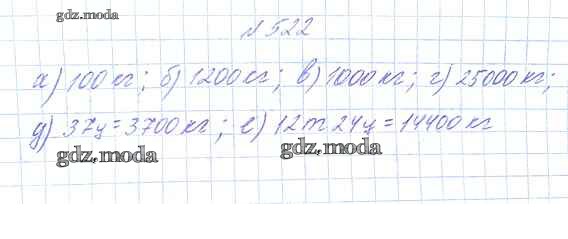 gdz.moda
№522
а) 100 кг; б) 1200 кг; в) 1000 кг; г) 25000 кг;
д) 37ц = 3700 кг; е) 12т 24ц = 14400 кг
gdz.moda gdz.moda